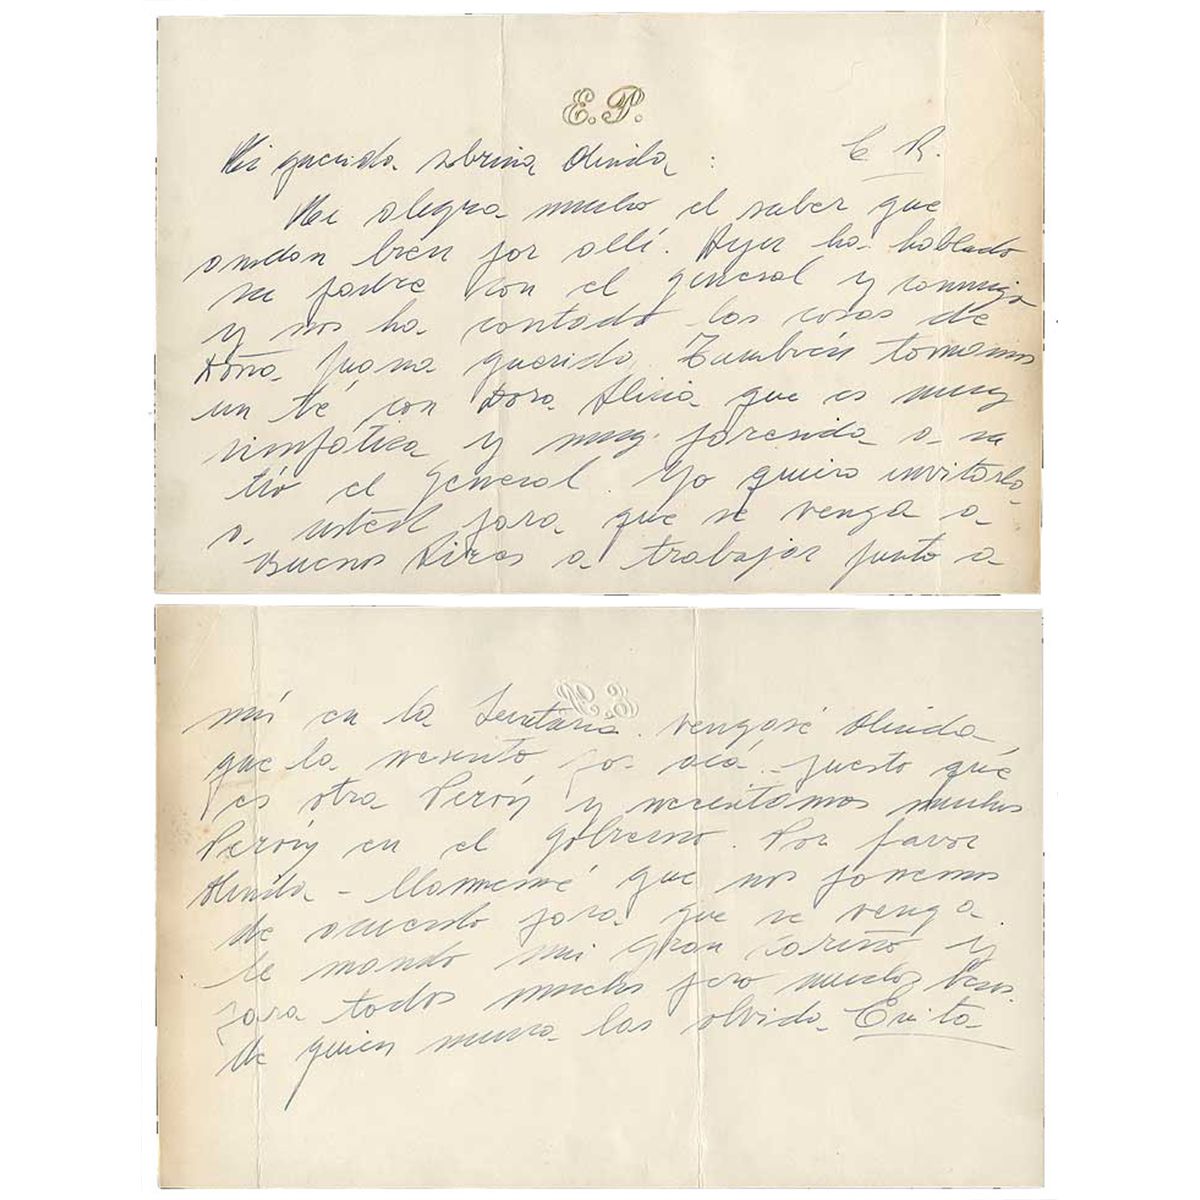 E. P.
C R.
Mi querida sobrina Olinda :
Me alegra mucho el saber que
andan bien por allí. Ayer ha hablado
su padre con el general y conmigo
y nos ha contado las cosas de
Doña Juana querida. También tomamos
un té con Dora Alicia que es muy
simpática y muy parecida a su
tío el General. Yo quiero invitarla
a usted para que se venga a
Buenos Aires a trabajar junto a
mi en la Secretaria. vengasé Olinda
que la necesito por acá - puesto qué
es otra Perón y necesitamos muchos
Perón en el gobierno. Por favor
Olinda - llamemé que nos ponemos
de acuerdo para que se venga.
le mando mi gran cariño y
para todos muchos pero muchos besos.
de quien nunca las olvida Evita